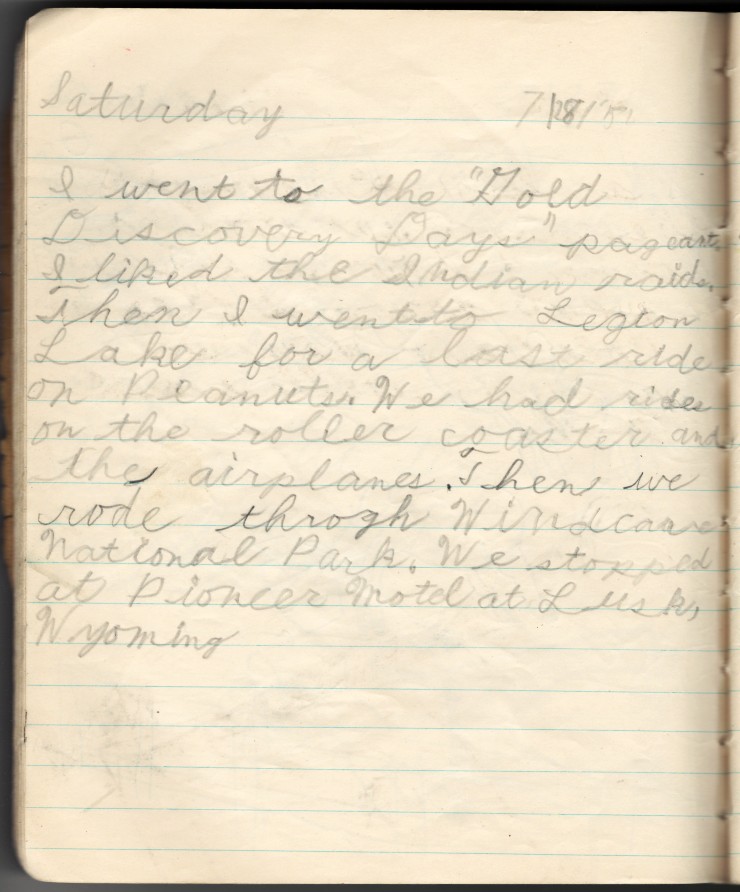 Saturday 7/28/51
I went to the "Gold
Discovery Days" pageant.
I liked the Indian raid.
Then I went to Legion
Lake for a last ride
on Peanuts. We had rides
on the roller coaster and
the airplanes. Then we
rode throgh Windcave
National Park. We stopped
at Pioneer Motel at Lusk,
Wyoming